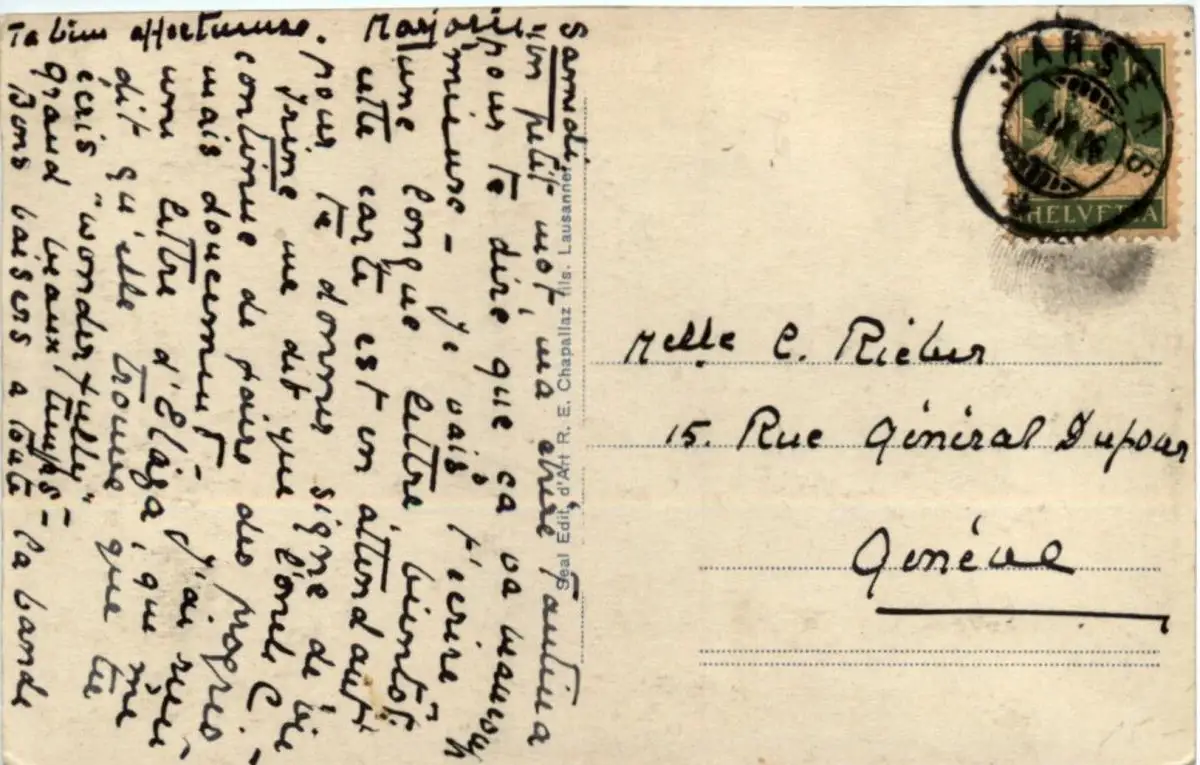 Samedi.
un petit mot, ma chère Fantina
pour te dire que ça va beaucoup
mieux - Je vais t'écrire
une longue lettre bientôt.
cette carte est en attendant
pour te donner signe de vie
Irène me dit que l'oncle C.
continue de faire des progrès
mais doucement - J'ai reçu
une lettre d'Elága, qui me
dit qu'elle trouve que tu
écris "wonderfully"
grand beau temps -
Bons baisers à toute la bande
Ta bien affectueuse. Marjorie
Seal Edit. d'Art R. E. Chapallaz fils. Lausanne
HELVETIA
Melle C. Rieber
15. Rue Général Dufour
Genève